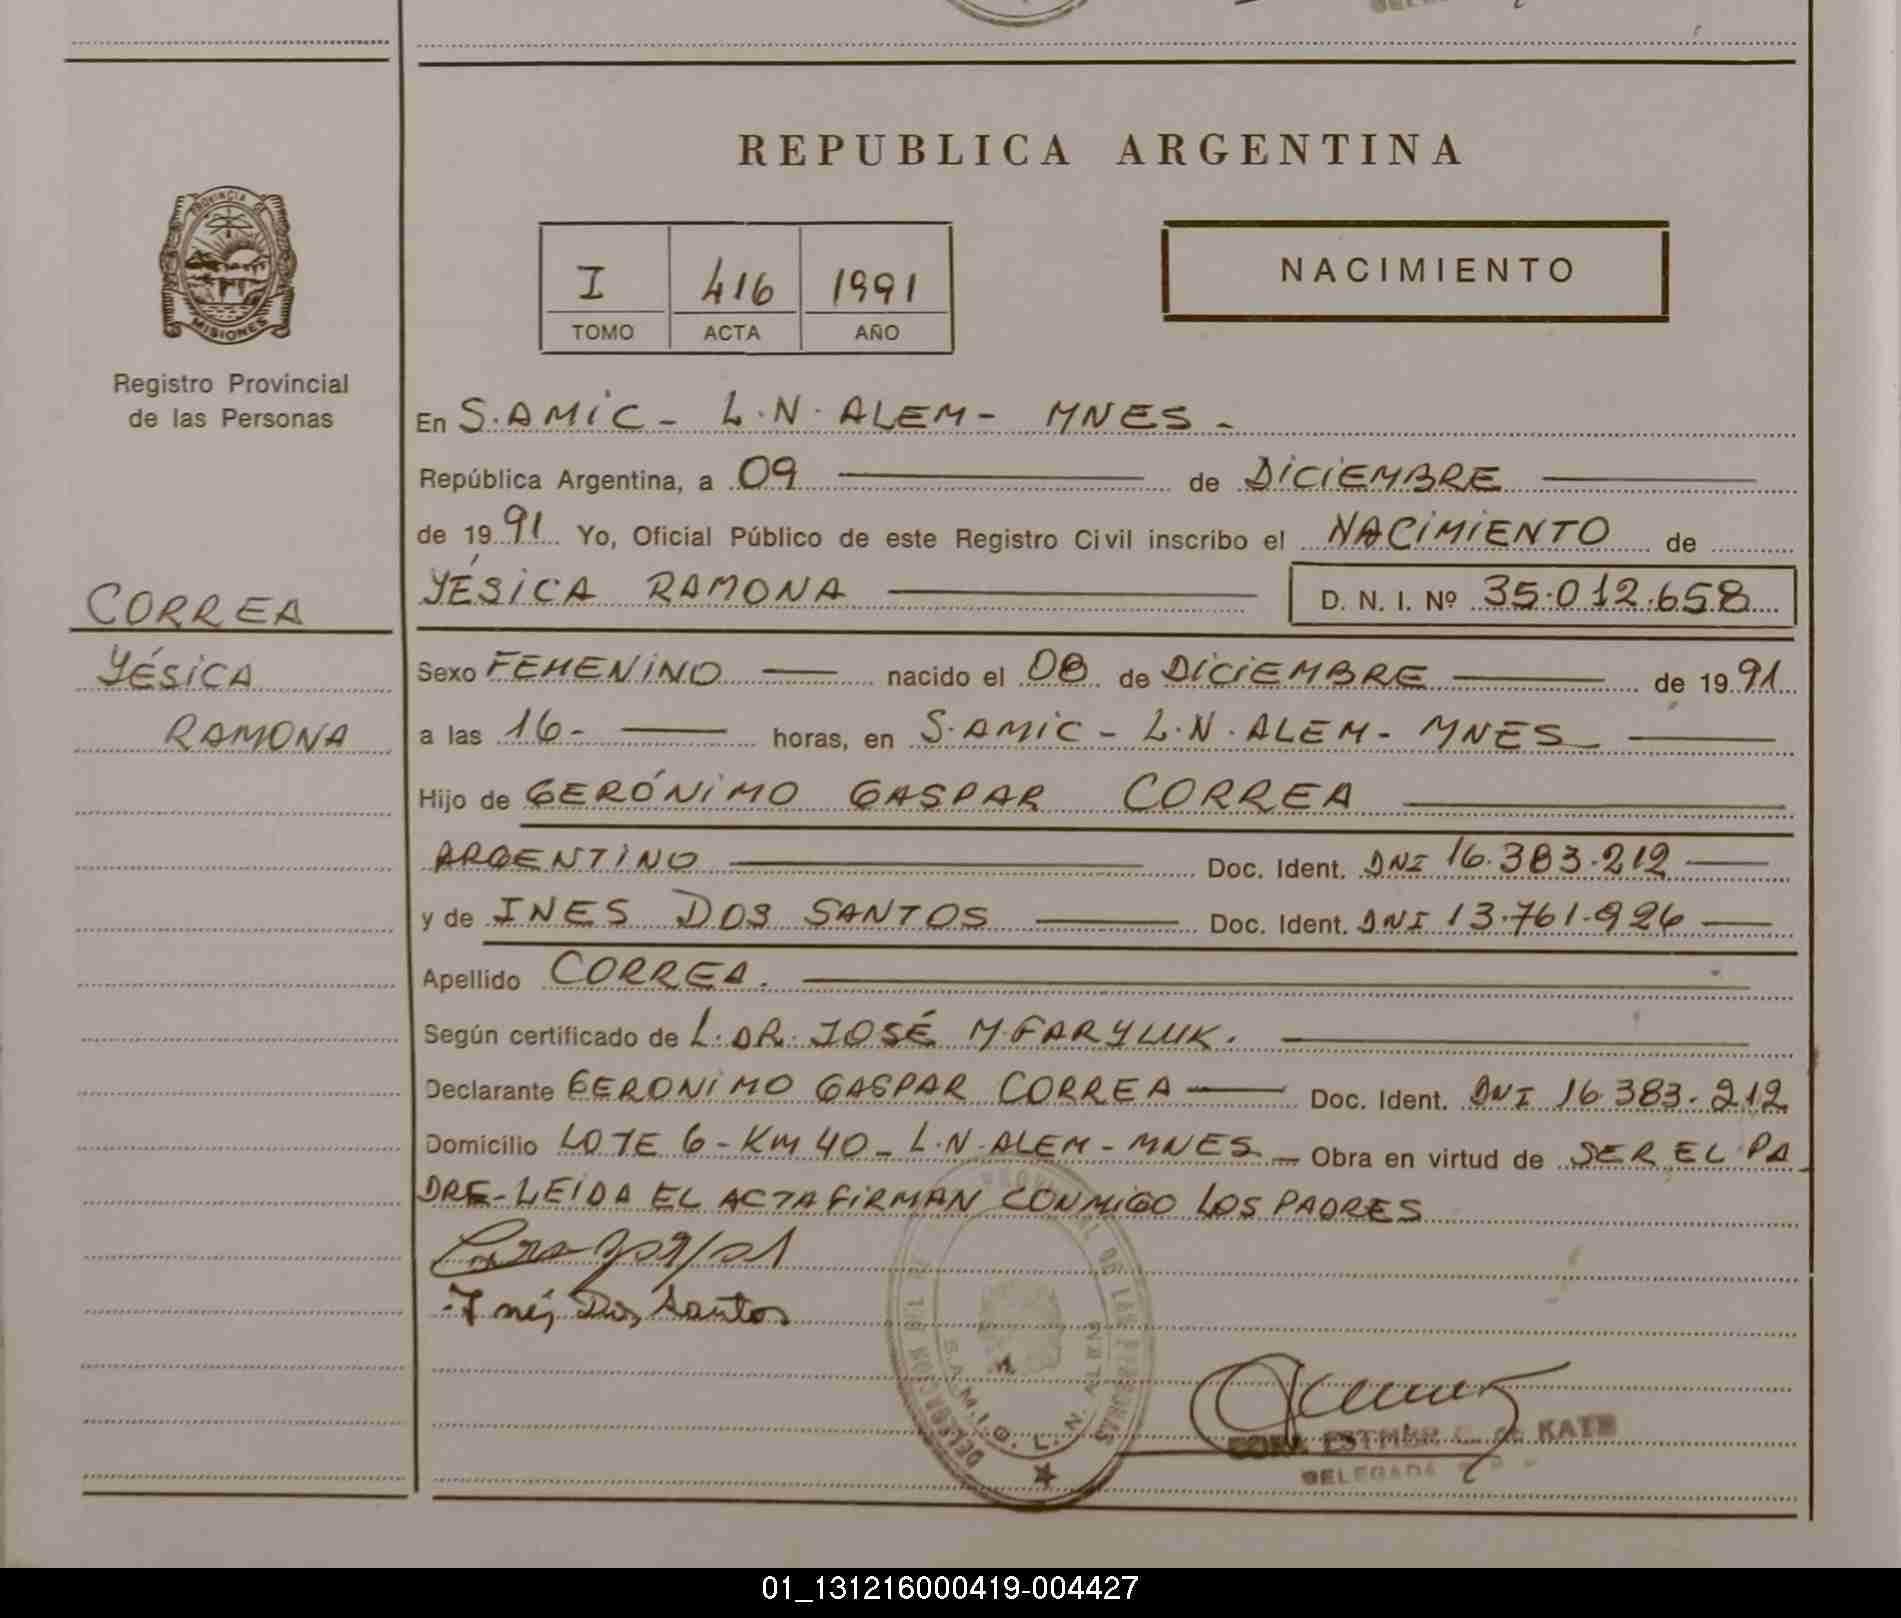 REPUBLICA ARGENTINA
PROVINCIA DE
MISIONES
Registro Provincial
de las Personas
I 416 1991
TOMO ACTA AÑO
NACIMIENTO
En S.AMIC - L.N.ALEM - MNES -
República Argentina, a 09 de DICIEMBRE
de 1991 Yo, Oficial Público de este Registro Civil inscribo el NACIMIENTO de
YÉSICA RAMONA D. N. I. Nº 35.012.658
CORREA
YÉSICA
RAMONA
Sexo FEMENINO nacido el 08 de DICIEMBRE de 1991
a las 16- horas, en S.AMIC - L.N.ALEM - MNES
Hijo de GERÓNIMO GASPAR CORREA
ARGENTINO Doc. Ident. DNI 16.383.212
y de INES DOS SANTOS Doc. Ident. DNI 13.761.926
Apellido CORREA.
Según certificado de L.DR.JOSÉ M.FARYLUK.
Declarante GERONIMO GASPAR CORREA Doc. Ident. DNI 16.383.212
Domicilio LOTE 6 - KM 40 - L.N.ALEM - MNES - Obra en virtud de SER EL PA
DRE - LEIDA EL ACTA FIRMAN CONMIGO LOS PADRES
Inés Dos Santos
DELEGACION DEL RE PROVINCIAL DE LAS PERSONAS
L. N. ALEM
ESTHER C. de KATZ
DELEGADA
01_131216000419-004427